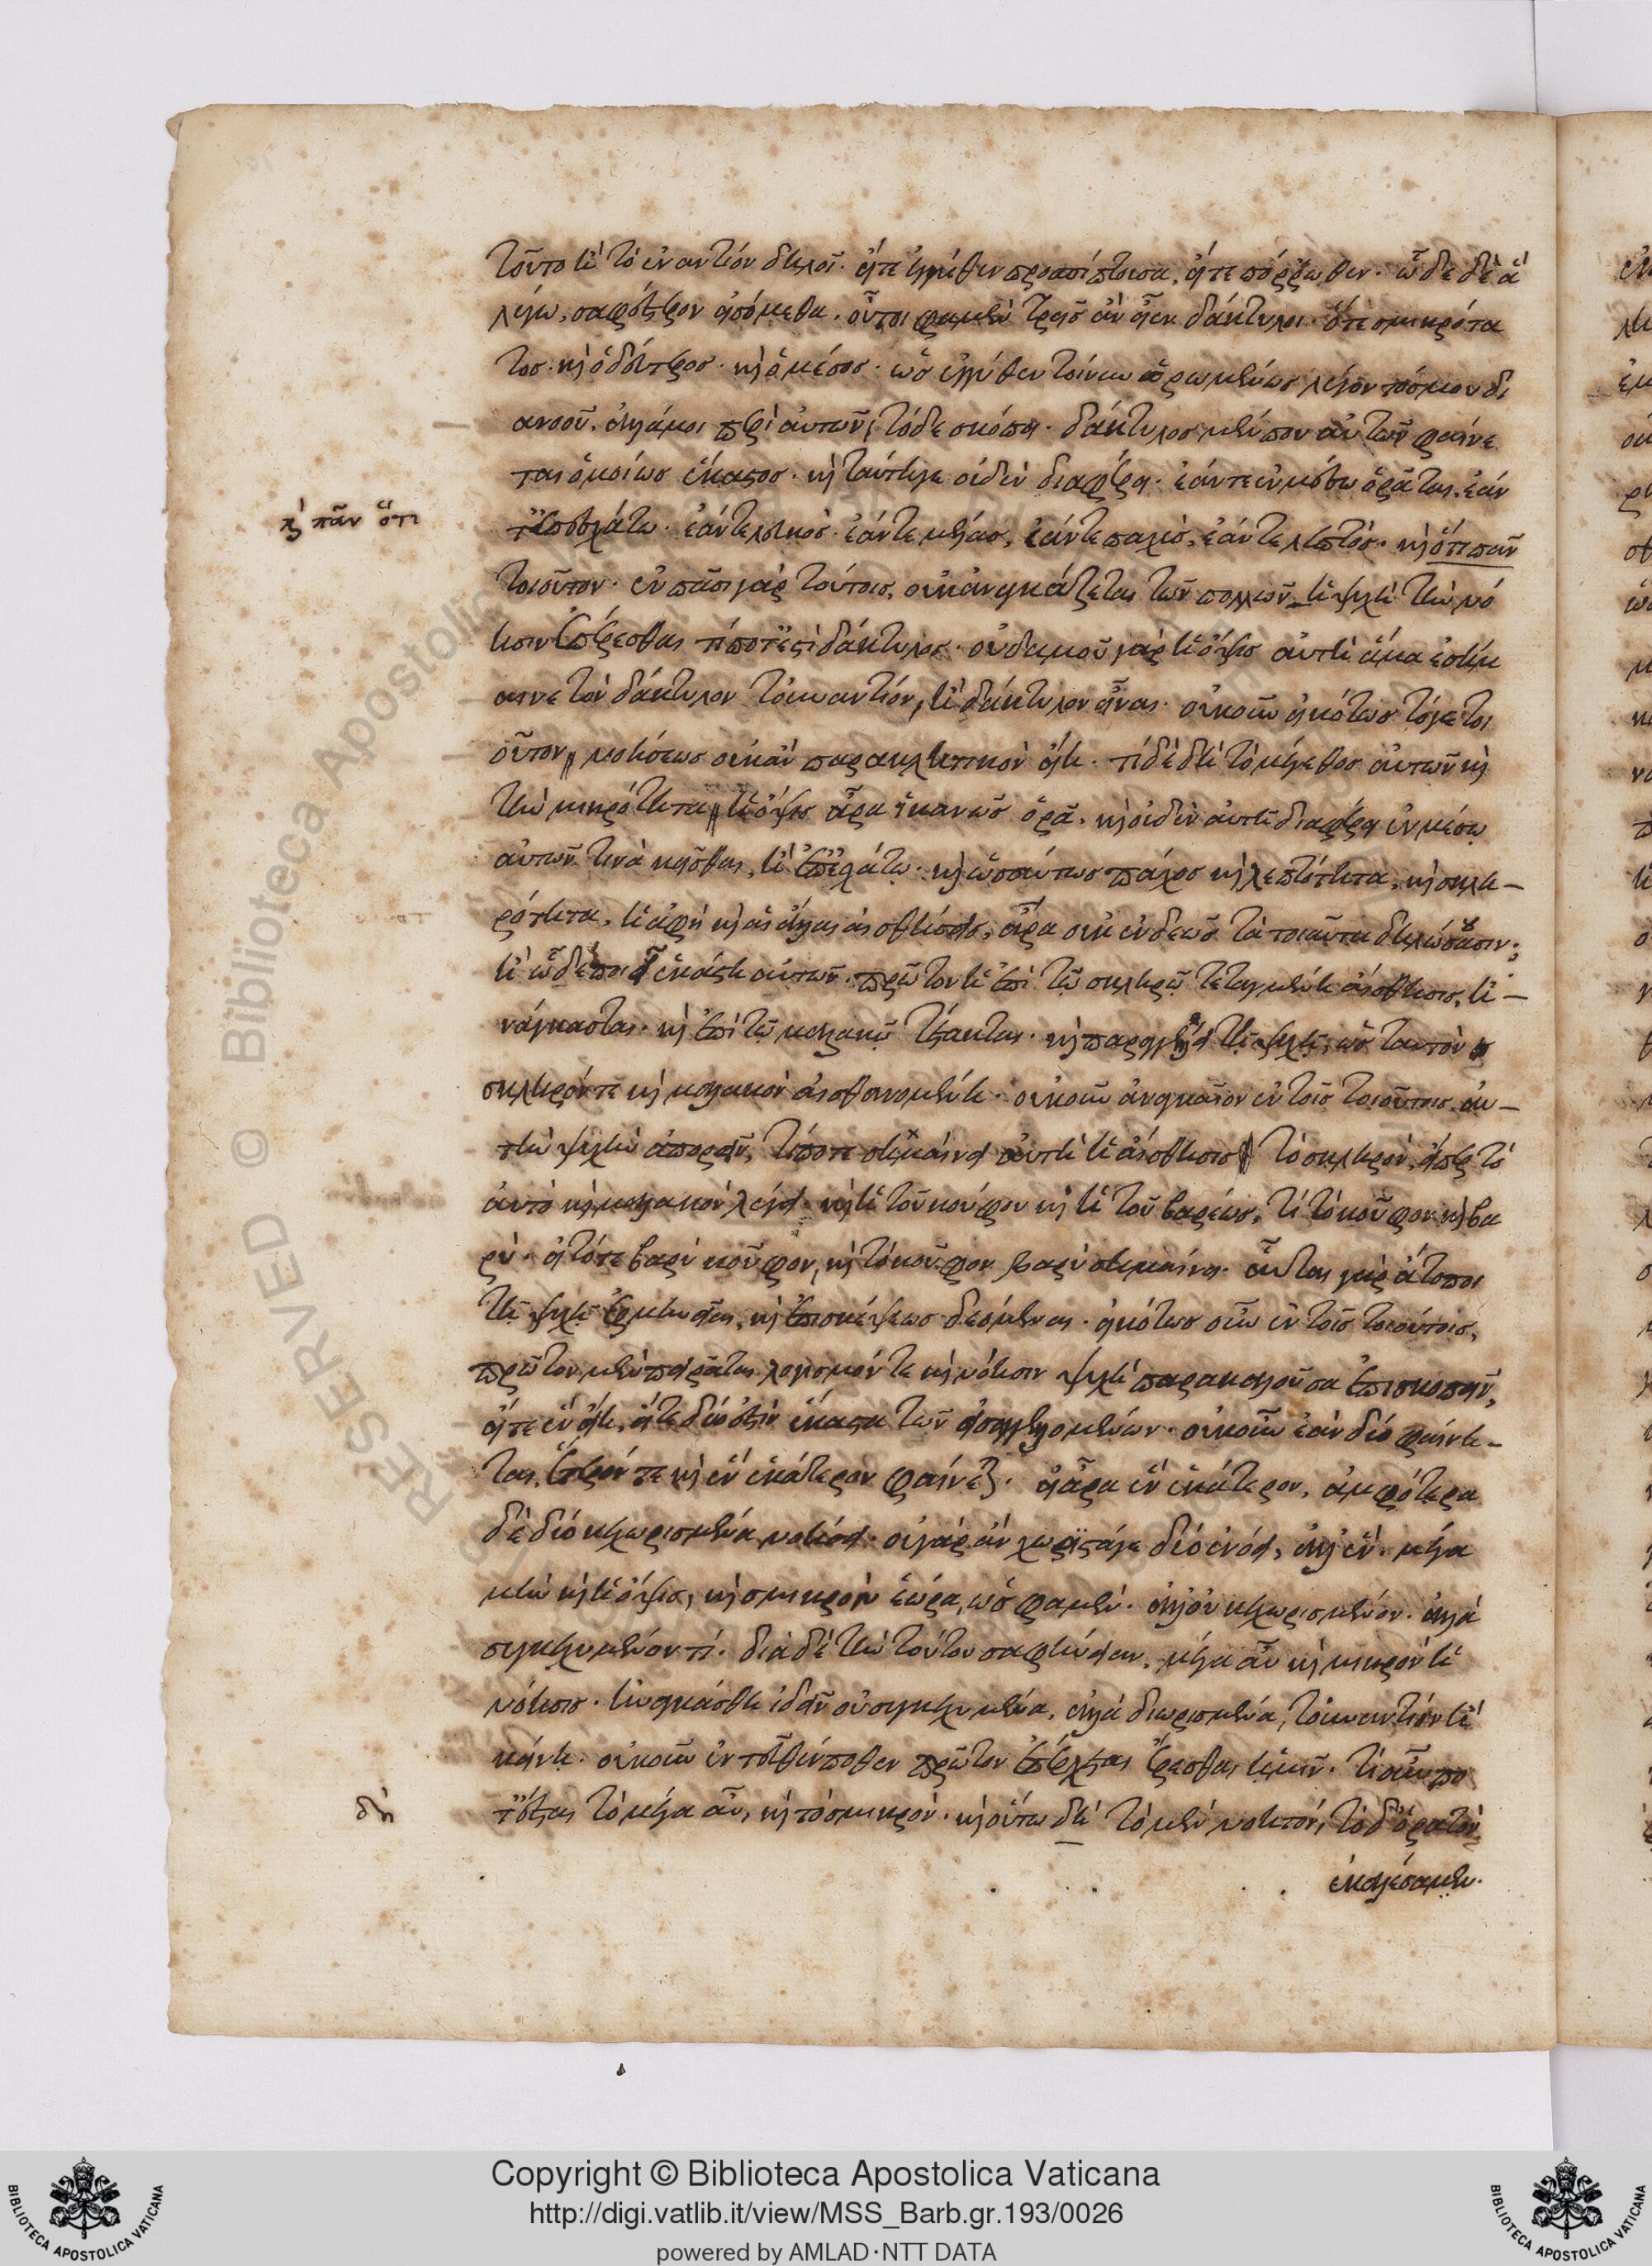 τοῦτο ἢ τὸ ἐναντίον δηλοῖ. εἴτε ἐγγύθεν προσπίπτουσα, εἴτε πόρρωθεν. ὧδε δὲ ἃ
λέγω, σαφέστερον εἰσόμεθα. οὗτοι φαμὲν τρεῖς ἂν εἶεν δάκτυλοι. ὅτε σμικρότα
τος. καὶ ὁ δεύτερος. καὶ ὁ μέσος. ὡς ἐγγύθεν τοίνυν ὁρωμένους λέγοντός μου δι
ανοοῦ. ἀλλά μοι περὶ αὐτῶν τόδε σκόπει. δάκτυλος μέν που αὐτῶν φαίνε
ται ὁμοίως ἕκαστος. καὶ ταύτηγε οὐδὲν διαφέρει. ἐάντε ἐν μέσῳ ὁρᾶται, ἐάν
τ' ἐπ' ἐσχάτῳ. ἐάντε λευκὸς. ἐάντε μέλας, ἐάντε παχὺς, ἐάντε λεπτός. καὶ ὅτι πᾶν
καὶ πᾶν ὅτι
τοιοῦτον. ἐν πᾶσι γὰρ τούτοις, οὐκ ἀναγκάζεται τῶν πολλῶν ἡ ψυχὴ τὴν νό
ησιν ἐπερέσθαι τί ποτ' ἐστὶ δάκτυλος. οὐδαμοῦ γὰρ ἡ ὄψις αὐτῇ ἅμα ἐσήμ
αινε τὸν δάκτυλον τοὐναντίον, ἢ δάκτυλον εἶναι. οὐκοῦν εἰκότως τόγε τοι
οῦτον νοήσεως οὐκ ἂν παρακλητικὸν εἴη. τί δὲ δὴ τὸ μέγεθος αὐτῶν καὶ
τὴν μικρότητα ἡ ὄψις ἆρα ἱκανῶς ὁρᾷ. καὶ οὐδὲν αὐτῇ διαφέρει ἐν μέσῳ
αὐτῶν τινὰ κεῖσθαι, ἢ ἐπ' ἐσχάτῳ. καὶ ὡσαύτως πάχος καὶ λεπτότητα, καὶ σκλη-
ρότητα, ἡ ἁφὴ καὶ αἱ ἄλλαι αἰσθήσεις, ἆρα οὐκ ἐνδεῶς τὰ τοιαῦτα δηλώσουσιν;
ἢ ὧδε ποιεῖ ἑκάστη αὐτῶν. πρῶτον ἡ ἐπὶ τῷ σκληρῷ τεταγμένη αἴσθησις, ἠ-
νάγκασται. καὶ ἐπὶ τῷ μαλακῷ τετάχθαι. καὶ παραγγέλλει τῇ ψυχῇ, ὡς ταυτὸν
σκληρόν τε καὶ μαλακὸν αἰσθανομένη. οὐκοῦν ἀναγκαῖον ἐν τοῖς τοιούτοις αὐ-
τὴν ψυχὴν ἀπορεῖν, τί ποτε σημαίνει αὐτῇ ἡ αἴσθησις τὸ σκληρὸν, εἴπερ τὸ
αὐτὸ καὶ μαλακὸν λέγει. καὶ ἡ τοῦ κούφου καὶ ἡ τοῦ βαρέως, τί τὸ κοῦφον καὶ βα
ρύ. εἰ τό τε βαρὺ κοῦφον, καὶ τὸ κοῦφον βαρὺ σημαίνει. αὗται γὰρ ἄτοποι
τῇ ψυχῇ ἑρμηνεῖαι, καὶ ἐπισκέψεως δεόμεναι. εἰκότως οὖν ἐν τοῖς τοιούτοις,
πρῶτον μὲν πειρᾶται λογισμόν τε καὶ νόησιν ψυχὴ παρακαλοῦσα ἐπισκοπεῖν,
εἴτε ἓν εἴη, εἴτε δύο ἐστὶν ἕκαστα τῶν εἰσαγγελλομένων. οὐκοῦν ἐὰν δύο φαίνη-
ται, ἕτερόν τε καὶ ἓν ἑκάτερον φαίνεται. εἰ ἄρα ἓν ἑκάτερον, ἀμφότερα
δὲ δύο κεχωρισμένα νοήσει. οὐ γὰρ ἂν χωριστάγε δύο ἐνόει, ἀλλ' ἕν. μέγα
μὴν καὶ ἡ ὄψις, καὶ σμικρὸν ἑώρα, ὡς φαμέν. ἀλλ' οὐ κεχωρισμένον. ἀλλὰ
συγκεχυμένον τί. διὰ δὲ τὴν τούτου σαφήνειαν, μέγα αὖ καὶ μικρὸν ἡ
νόησις. ἠναγκάσθη ἰδεῖν οὐ συγκεχυμένα, ἀλλὰ διωρισμένα, τοὐναντίον ἢ
κείνη. οὐκοῦν ἐντεῦθέν ποθεν πρῶτον ἐπέρχεται ἔρεσθαι ἡμῖν. τί οὖν πο
τ' ἐστὶ τὸ μέγα αὖ, καὶ τὸ σμικρόν. καὶ οὕτω δὴ τὸ μὲν νοητόν, τὸ δ' ὁρατὸν
δὴ
ἐκαλέσαμεν.
RESERVED © Biblioteca Apostolica
Copyright © Biblioteca Apostolica Vaticana
http://digi.vatlib.it/view/MSS_Barb.gr.193/0026
powered by AMLAD·NTT DATA
BIBLIOTECA APOSTOLICA VATICANA
BIBLIOTECA APOSTOLICA VATICANA